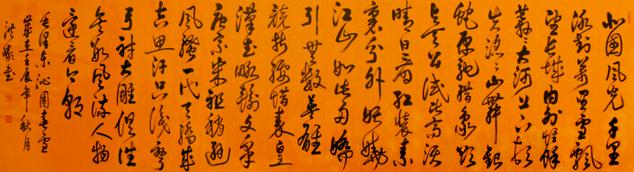 北国风光千里
冰封万里雪飘
望长城内外惟余
莽莽大河上下顿
失滔滔山舞银
蛇原驰蜡象欲
与天公试比高须
晴日看红装素
裹分外妖娆
江山如此多娇
引无数英雄
竞折腰惜秦皇
汉武略输文采
唐宗宋祖稍逊
风骚一代天骄成
吉思汗只识弯
弓射大雕俱往
矣数风流人物
还看今朝
毛泽东沁园春雪
岁在壬辰年秋月
书